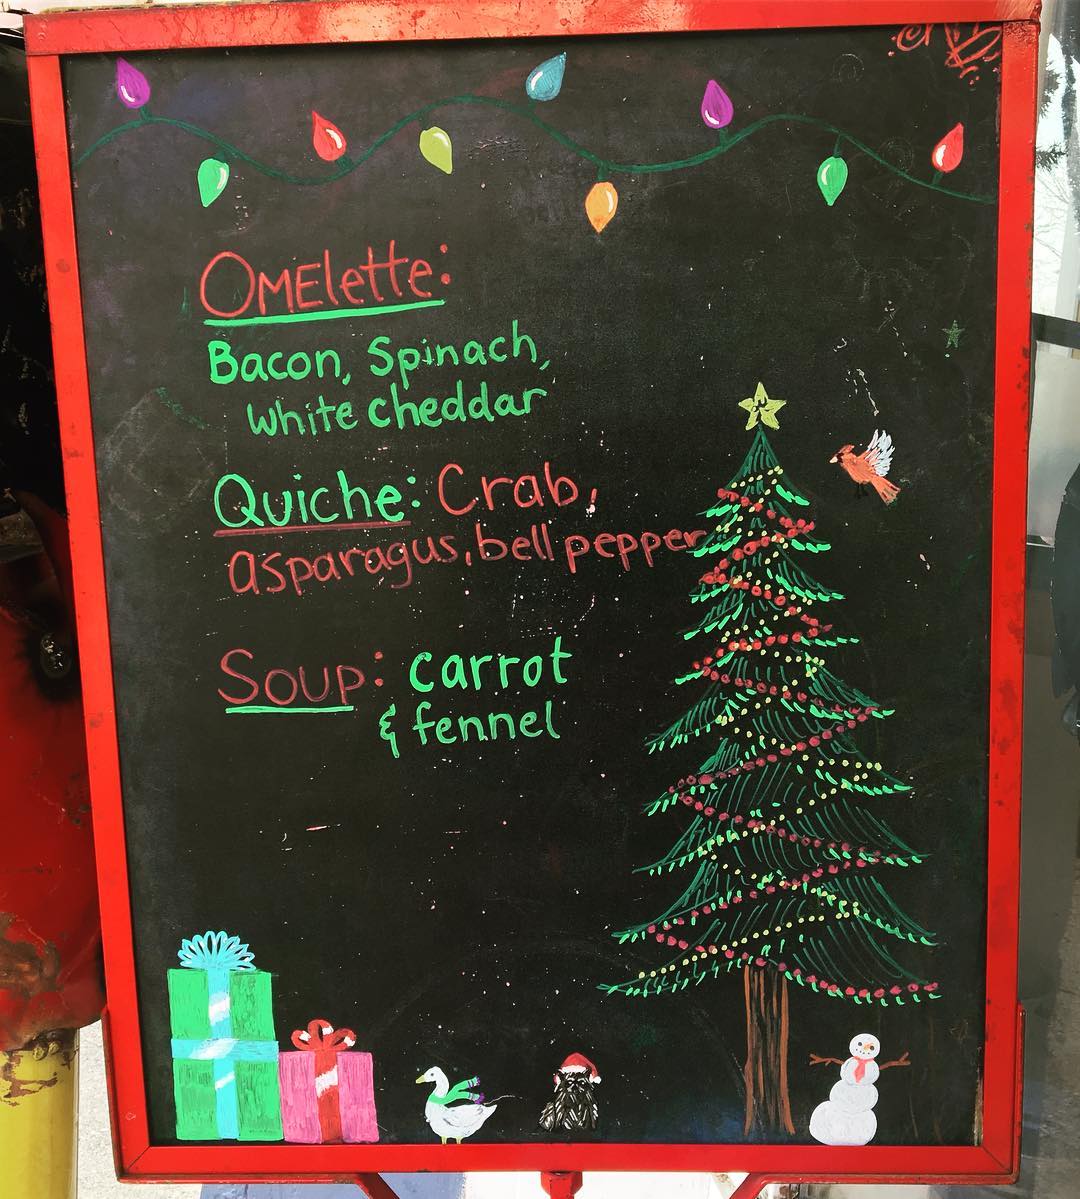 Omelette:
Bacon, Spinach,
White cheddar
Quiche: Crab,
asparagus, bell pepper
Soup: carrot
& fennel